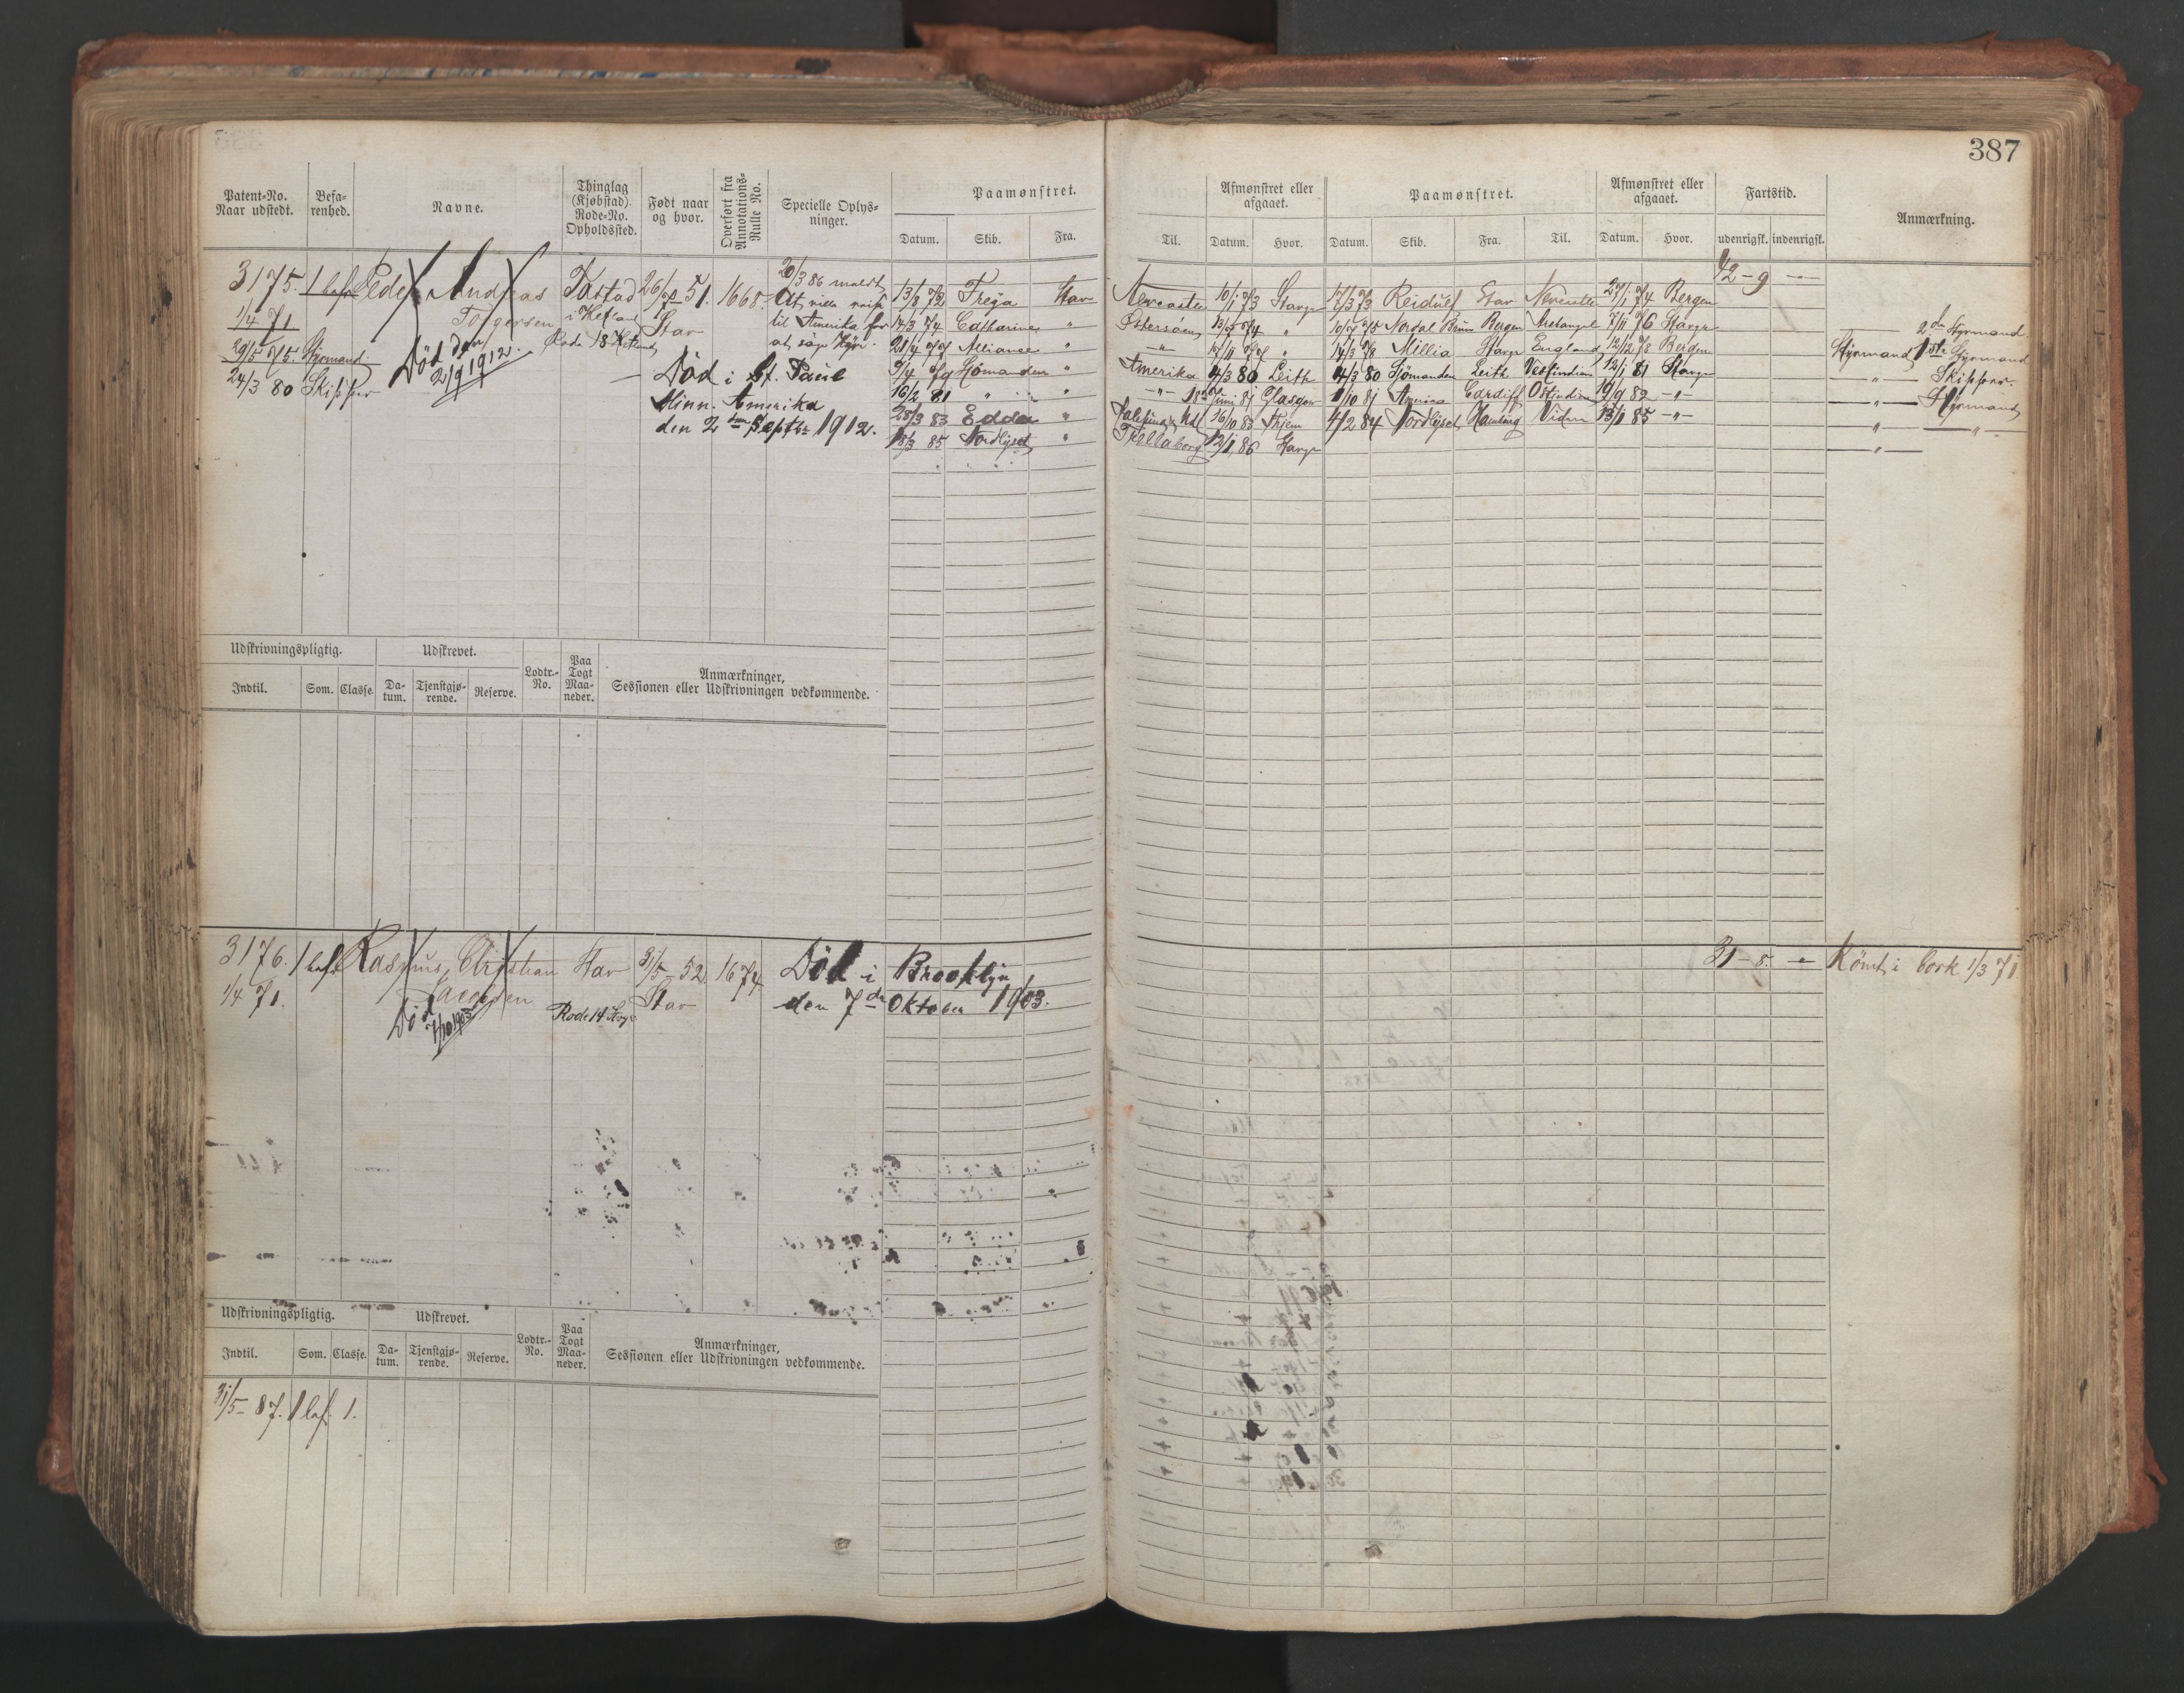 387
Patent-No.
Naar udstedt.
Befa-
renhed.
Navne.
Thinglag
(Kjøbstad).
Rode-No.
Opholdssted.
Født naar
og hvor.
Overført fra
Annotations-
Rulle No.
Specielle Oplys-
ninger.
Paamønstret.
Datum. Skib. Fra.
Til.
Afmønstret eller
afgaaet.
Datum. Hvor.
Paamønstret.
Datum. Skib. Fra. Til.
Afmønstret eller
afgaaet.
Datum. Hvor.
Fartstid.
udenrigsk. indenrigsk.
Anmærkning.
3175. 1 bef. Peder Andreas
Torgersen
1/4 71
29/5 75. Styrmand
24/3 80 Skipper
Død den
2/9 1912.
Tastad
i Hetland
Rode 18 Hetland
26/7 51.
Stav
1668.
20/3 86 meldt
at ville reise
til Amerika for
at søge Hyre.
Død i St. Paul
Minn. Amerika
den 2den Septbr 1912.
13/8 72 Freya Stav
14/3 74 Catharine "
21/4 77 Alliance "
9/4 79 Sjømanden "
16/2 81 " "
28/3 83 Edda "
18/3 85 Nordlyset "
Newcastle 10/1 73 Stavgr 17/3 73 Reidulf Stav Newcastle 27/1 74 Bergen
Østersøen " 10/5 75 Nordal Brun Bergen Archangel 7/11 76 Stavgr
14/3 78 Millia Stavgr England 12/12 78 Bergen
Amerika 4/3 80 Leith 4/3 80 Sjømanden Leith Vestindien 12/1 81 Stavgr
Juni 81 Glasgow 1/10 81 Cardiff Ostindien 19/9 82 -"-
16/10 83 Trhjem 4/2 84 Nordlyset 13/1 85 -"-
Trelleborg 12/1 86 Stavgr
42-9 —
2den Styrmand
Styrmand 1ste Styrmand
—"— Skipper.
—"— Styrmand
—"— —"—
—"—
Udskrivningspligtig.
Indtil. Som. Classe.
Udskrevet.
Da-
tum.
Tjenstgjø-
rende.
Reserve.
Lodtr.-
No.
Paa
Togt
Maa-
neder.
Anmærkninger,
Sessionen eller Udskrivningen vedkommende.
3176. 1 bef. Rasmus Christian
Jacobsen
1/4 71.
Død
7/10 1903
Stav
Rode 14 Stvgr
31/5 52
Stav
1674
Død i Brooklyn
den 7de Oktober 1903.
31-5. - Rømt i Cork 1/3 71
Udskrivningspligtig.
Indtil. Som. Classe.
Udskrevet.
Da-
tum.
Tjenstgjø-
rende.
Reserve.
Lodtr.-
No.
Paa
Togt
Maa-
neder.
Anmærkninger,
Sessionen eller Udskrivningen vedkommende.
31/5 87. 1 bef. 1.